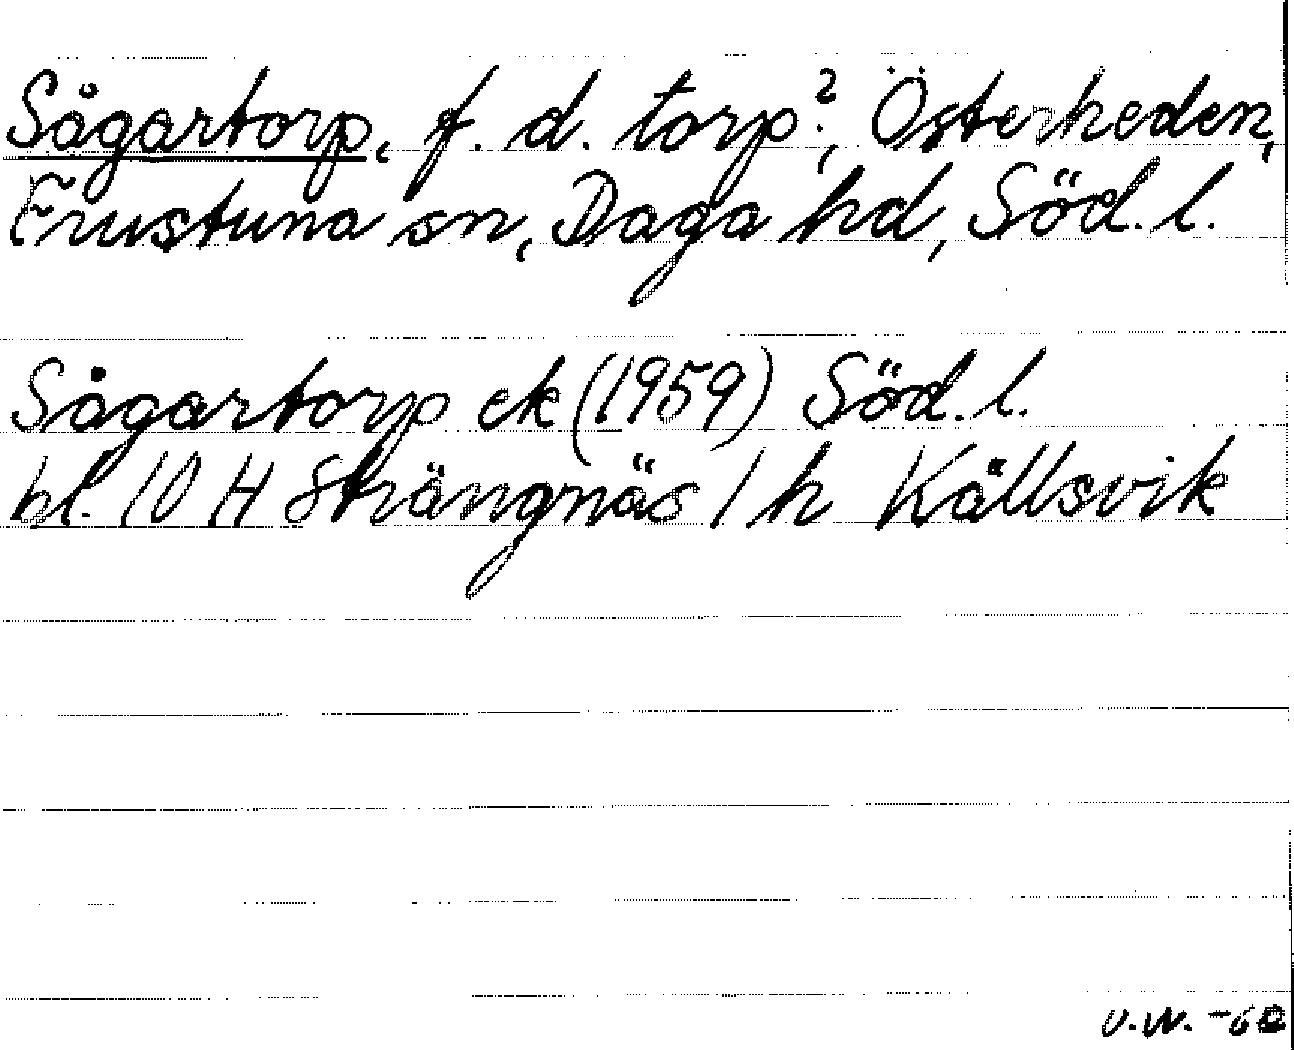 Sågartorp, f. d. torp?, Österheden,
Frustuna sn, Daga hd, Söd. l.
Sågartorp ek (1959) Söd. l.
bl. 10 H Strängnäs 1 h Källsvik